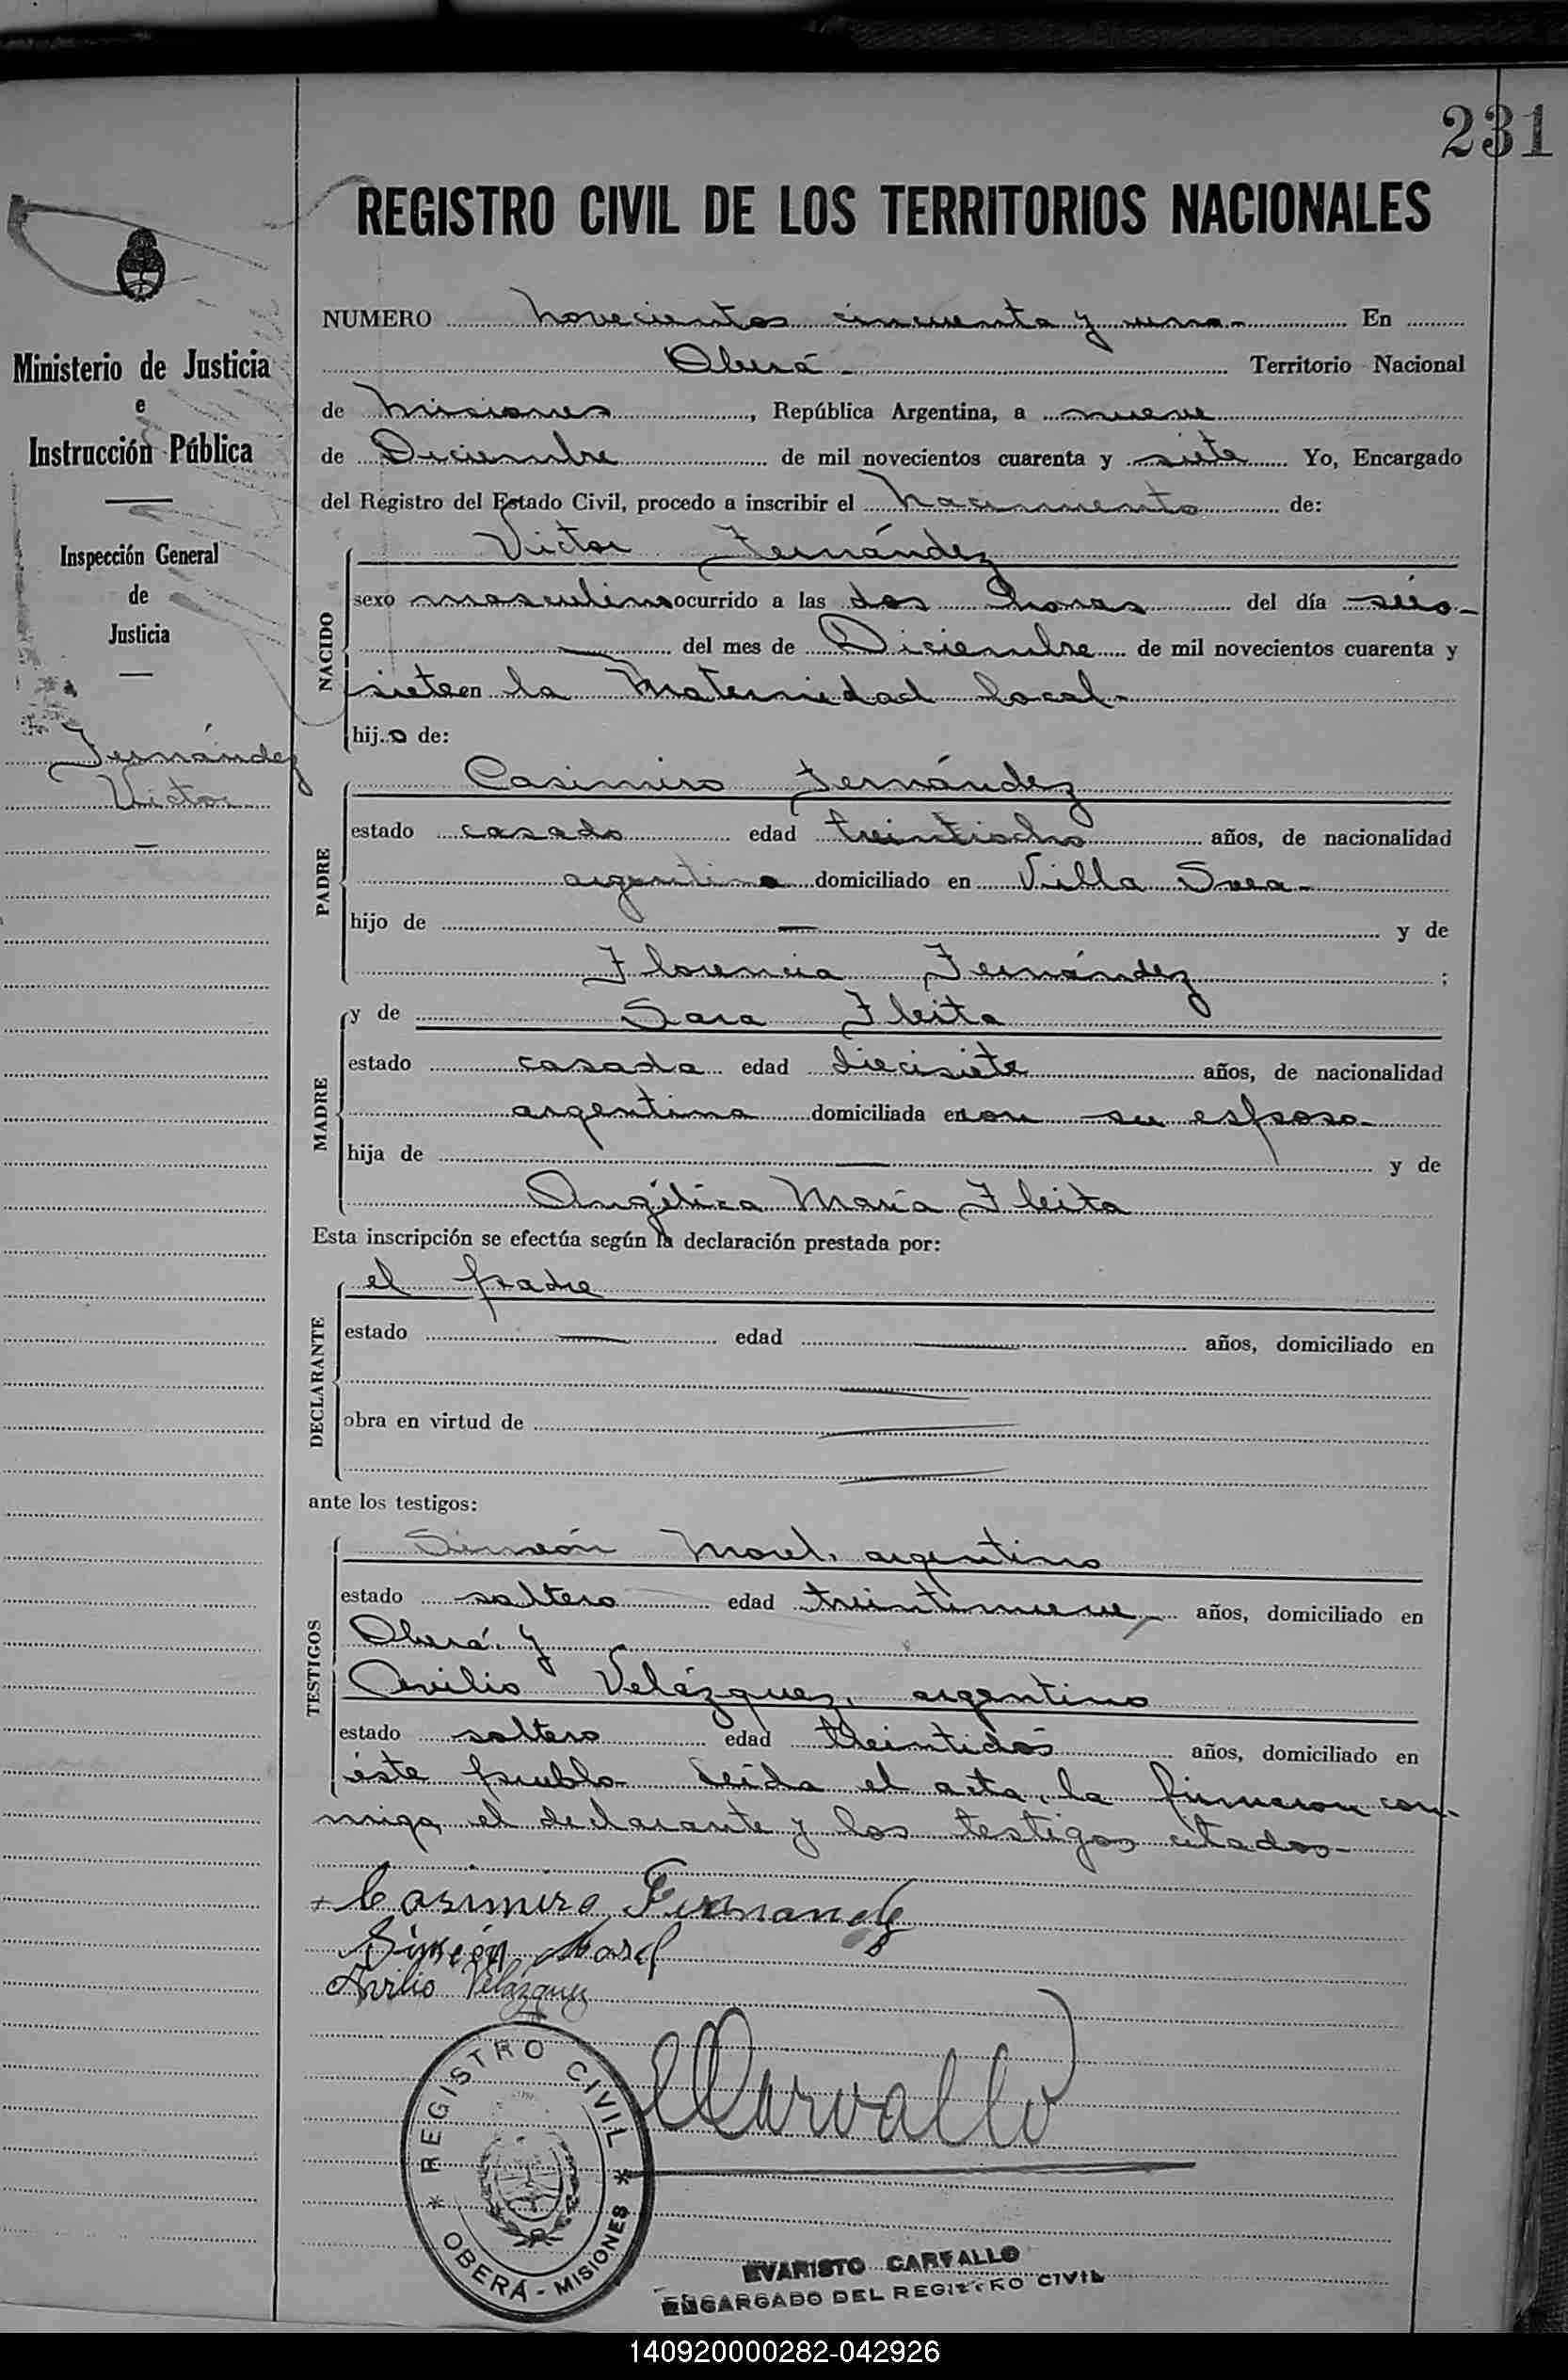 231
REGISTRO CIVIL DE LOS TERRITORIOS NACIONALES
Ministerio de Justicia
e
Instrucción Pública
Inspección General
de
Justicia
Fernández
Victor
NUMERO novecientos cincuenta y uno.- En
Oberá.- Territorio Nacional
de Misiones, República Argentina, a nueve
de Diciembre de mil novecientos cuarenta y siete Yo, Encargado
del Registro del Estado Civil, procedo a inscribir el nacimiento de:
NACIDO
Victor Fernández
sexo masculino ocurrido a las dos horas del día seis-
del mes de Diciembre de mil novecientos cuarenta y
siete en la Maternidad local.-
hijo de:
PADRE
Casimiro Fernández
estado casado edad treintiocho años, de nacionalidad
argentina domiciliado en Villa Svea-
hijo de — y de
Florencia Fernández ;
MADRE
y de Sara Fleita
estado casada edad diecisiete años, de nacionalidad
argentina domiciliada en con su esposo-
hija de — y de
Angélica María Fleita
Esta inscripción se efectúa según la declaración prestada por:
DECLARANTE
el padre
estado — edad — años, domiciliado en
obra en virtud de —
ante los testigos:
TESTIGOS
Simeón Morel, argentino
estado soltero edad treintinueve, años, domiciliado en
Oberá, y
Avilio Velázquez, argentino
estado soltero edad treintidós años, domiciliado en
éste pueblo Leída el acta, la firmaron con-
migo, el declarante y los testigos citados-
Casimiro Fernandez
Simeón Morel
Avilio Velázquez
ECarvallo
REGISTRO CIVIL
OBERÁ - MISIONES
EVARISTO CARVALLO
ENCARGADO DEL REGISTRO CIVIL
140920000282-042926